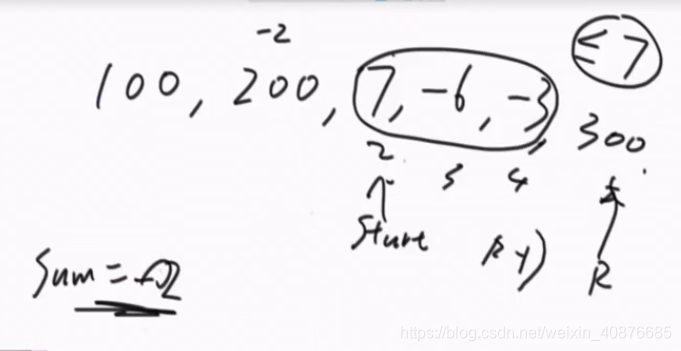 -2
≤ 7
100, 200, 7, -6, -3, 300
2 3 4
Start
R
Sum =
https://blog.csdn.net/weixin_40876685